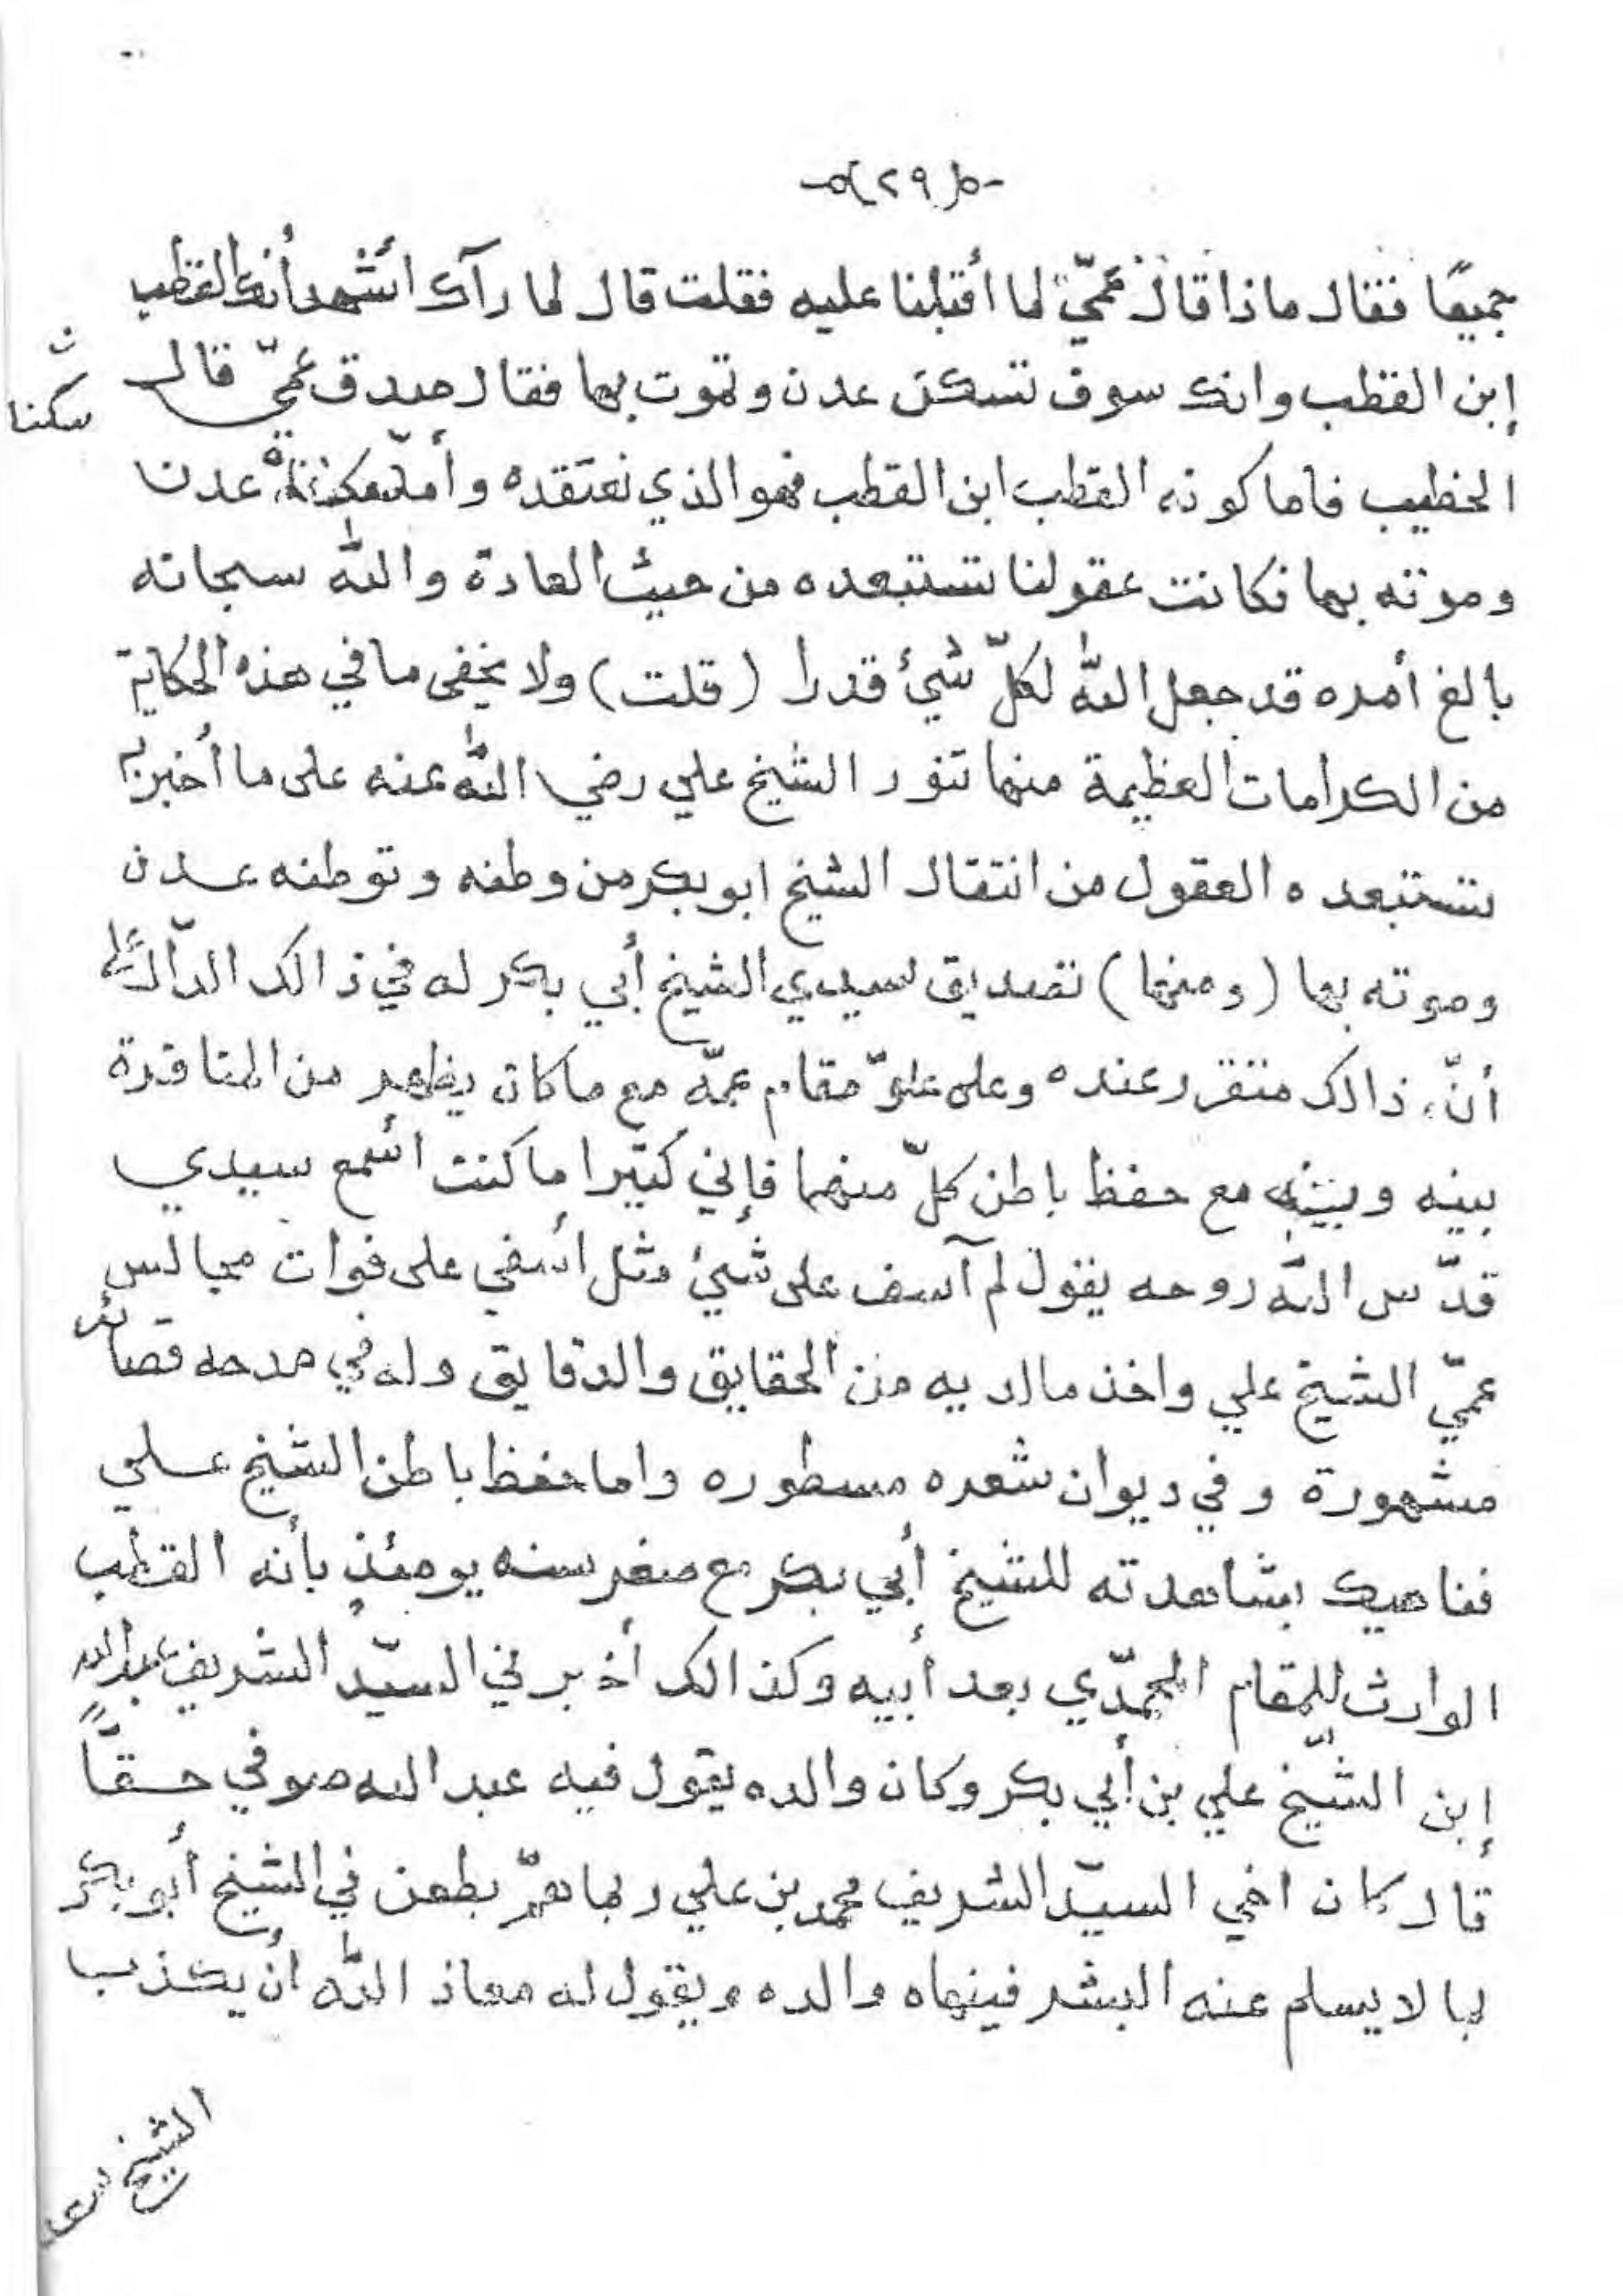 -o( ٢٩ )o-
جميعًا فقال ماذا قال عمّي لما أقبلنا عليه فقلت قال لما رآك أشهد أنك القطب
إبن القطب وانك سوف تسكن عدن وتموت بها فقال صدق عمّي قال
سكنا
الخطيب فاما كونه القطب ابن القطب فهو الذي نعتقده وأما عدن
وموته بها فكانت عقولنا تستبعده من حيث العادة والله سبحانه
بالغ أمره قد جعل الله لكلّ شيئ قدرا (قلت) ولا يخفى ما في هذه الحكاية
من الكرامات العظيمة منها تنور الشيخ علي رضي الله عنه على ما أخبر به
تستبعده العقول من انتقال الشيخ ابو بكر من وطنه وتوطنه عدن
وموته بها (ومنها) تصديق لسيدي الشيخ أبي بكر له في ذالك الدّالة على
أنّ ذالك متقرر عنده وعلى علوّ مقام عمّه مع ما كان يظهر من المناقرة
بينه وبينه مع حفظ باطن كلّ منهما فإني كثيرا ما كنت أسمع سيدي
قدّس الله روحه يقول لم آسف على شيئ مثل أسفي على فوات مجالس
عمّي الشيخ علي واخذ ما لديه من الحقايق والدقايق وله في مدحه قصائد
مشهورة وفي ديوان شعره مسطوره واما حفظ باطن الشيخ علي
فناهيك بشاهدته للشيخ أبي بكر مع صغر سنه يومئذٍ بأنه القطب
الوارث للمقام المحمّدي بعد أبيه وكذالك أخبرني السيّد الشريف عبد الله
إبن الشيخ علي بن أبي بكر وكان والده يقول فيه عبد الله صوفي حقًّا
قال كان اخي السيّد الشريف محمد بن علي ربما همّ بطعن في الشيخ أبو بكر
بما لا يسلم عنه البشر فينهاه والده ويقول له معاذ الله أن يكذب
الشيخ